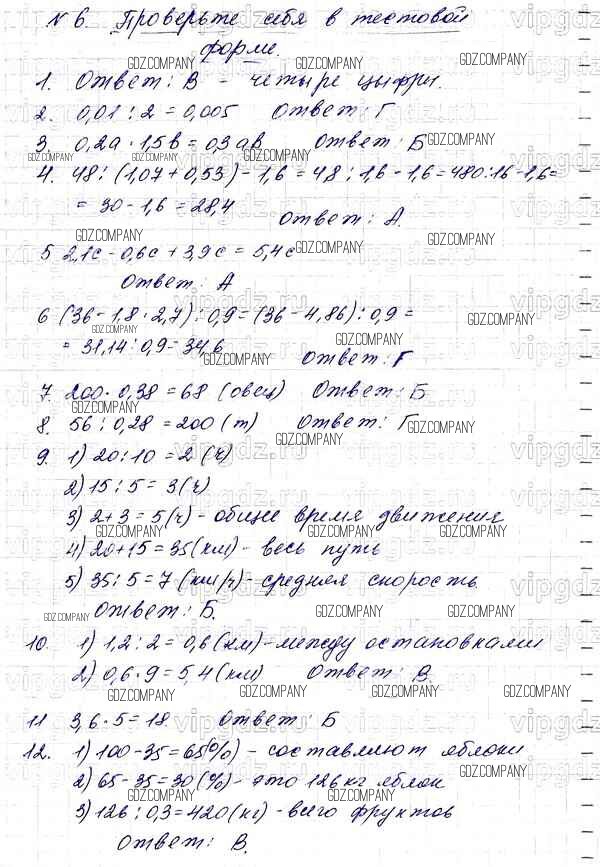 № 6. Проверьте себя в тестовой
форме.
1. Ответ: В - четыре цифры.
2. 0,01 : 2 = 0,005 Ответ: Г
3. 0,2а · 1,5в = 0,3 ав Ответ: Б
4. 48 : (1,07 + 0,53) - 1,6 = 48 : 1,6 - 1,6 = 480 : 16 - 1,6 =
= 30 - 1,6 = 28,4
Ответ: А.
5 2,1с - 0,6с + 3,9с = 5,4с
Ответ: А
6 (36 - 1,8 · 2,7) : 0,9 = (36 - 4,86) : 0,9 =
= 31,14 : 0,9 = 34,6
Ответ: Г
7. 200 · 0,38 = 68 (овец) Ответ: Б
8. 56 : 0,28 = 200 (т) Ответ: Г
9. 1) 20 : 10 = 2 (ч)
2) 15 : 5 = 3 (ч)
3) 2 + 3 = 5 (ч) - общее время движения
4) 20 + 15 = 35 (км) - весь путь
5) 35 : 5 = 7 (км/ч) - средняя скорость
Ответ: Б.
10. 1) 1,2 : 2 = 0,6 (км) - между остановками
2) 0,6 · 9 = 5,4 (км) Ответ: В.
11 3,6 · 5 = 18. Ответ: Б
12. 1) 100 - 35 = 65 (%) - составляют яблоки
2) 65 - 35 = 30 (%) - это 126 кг яблок
3) 126 : 0,3 = 420 (кг) - всего фруктов
Ответ: В.
GDZ.COMPANY
vipgdz.ru